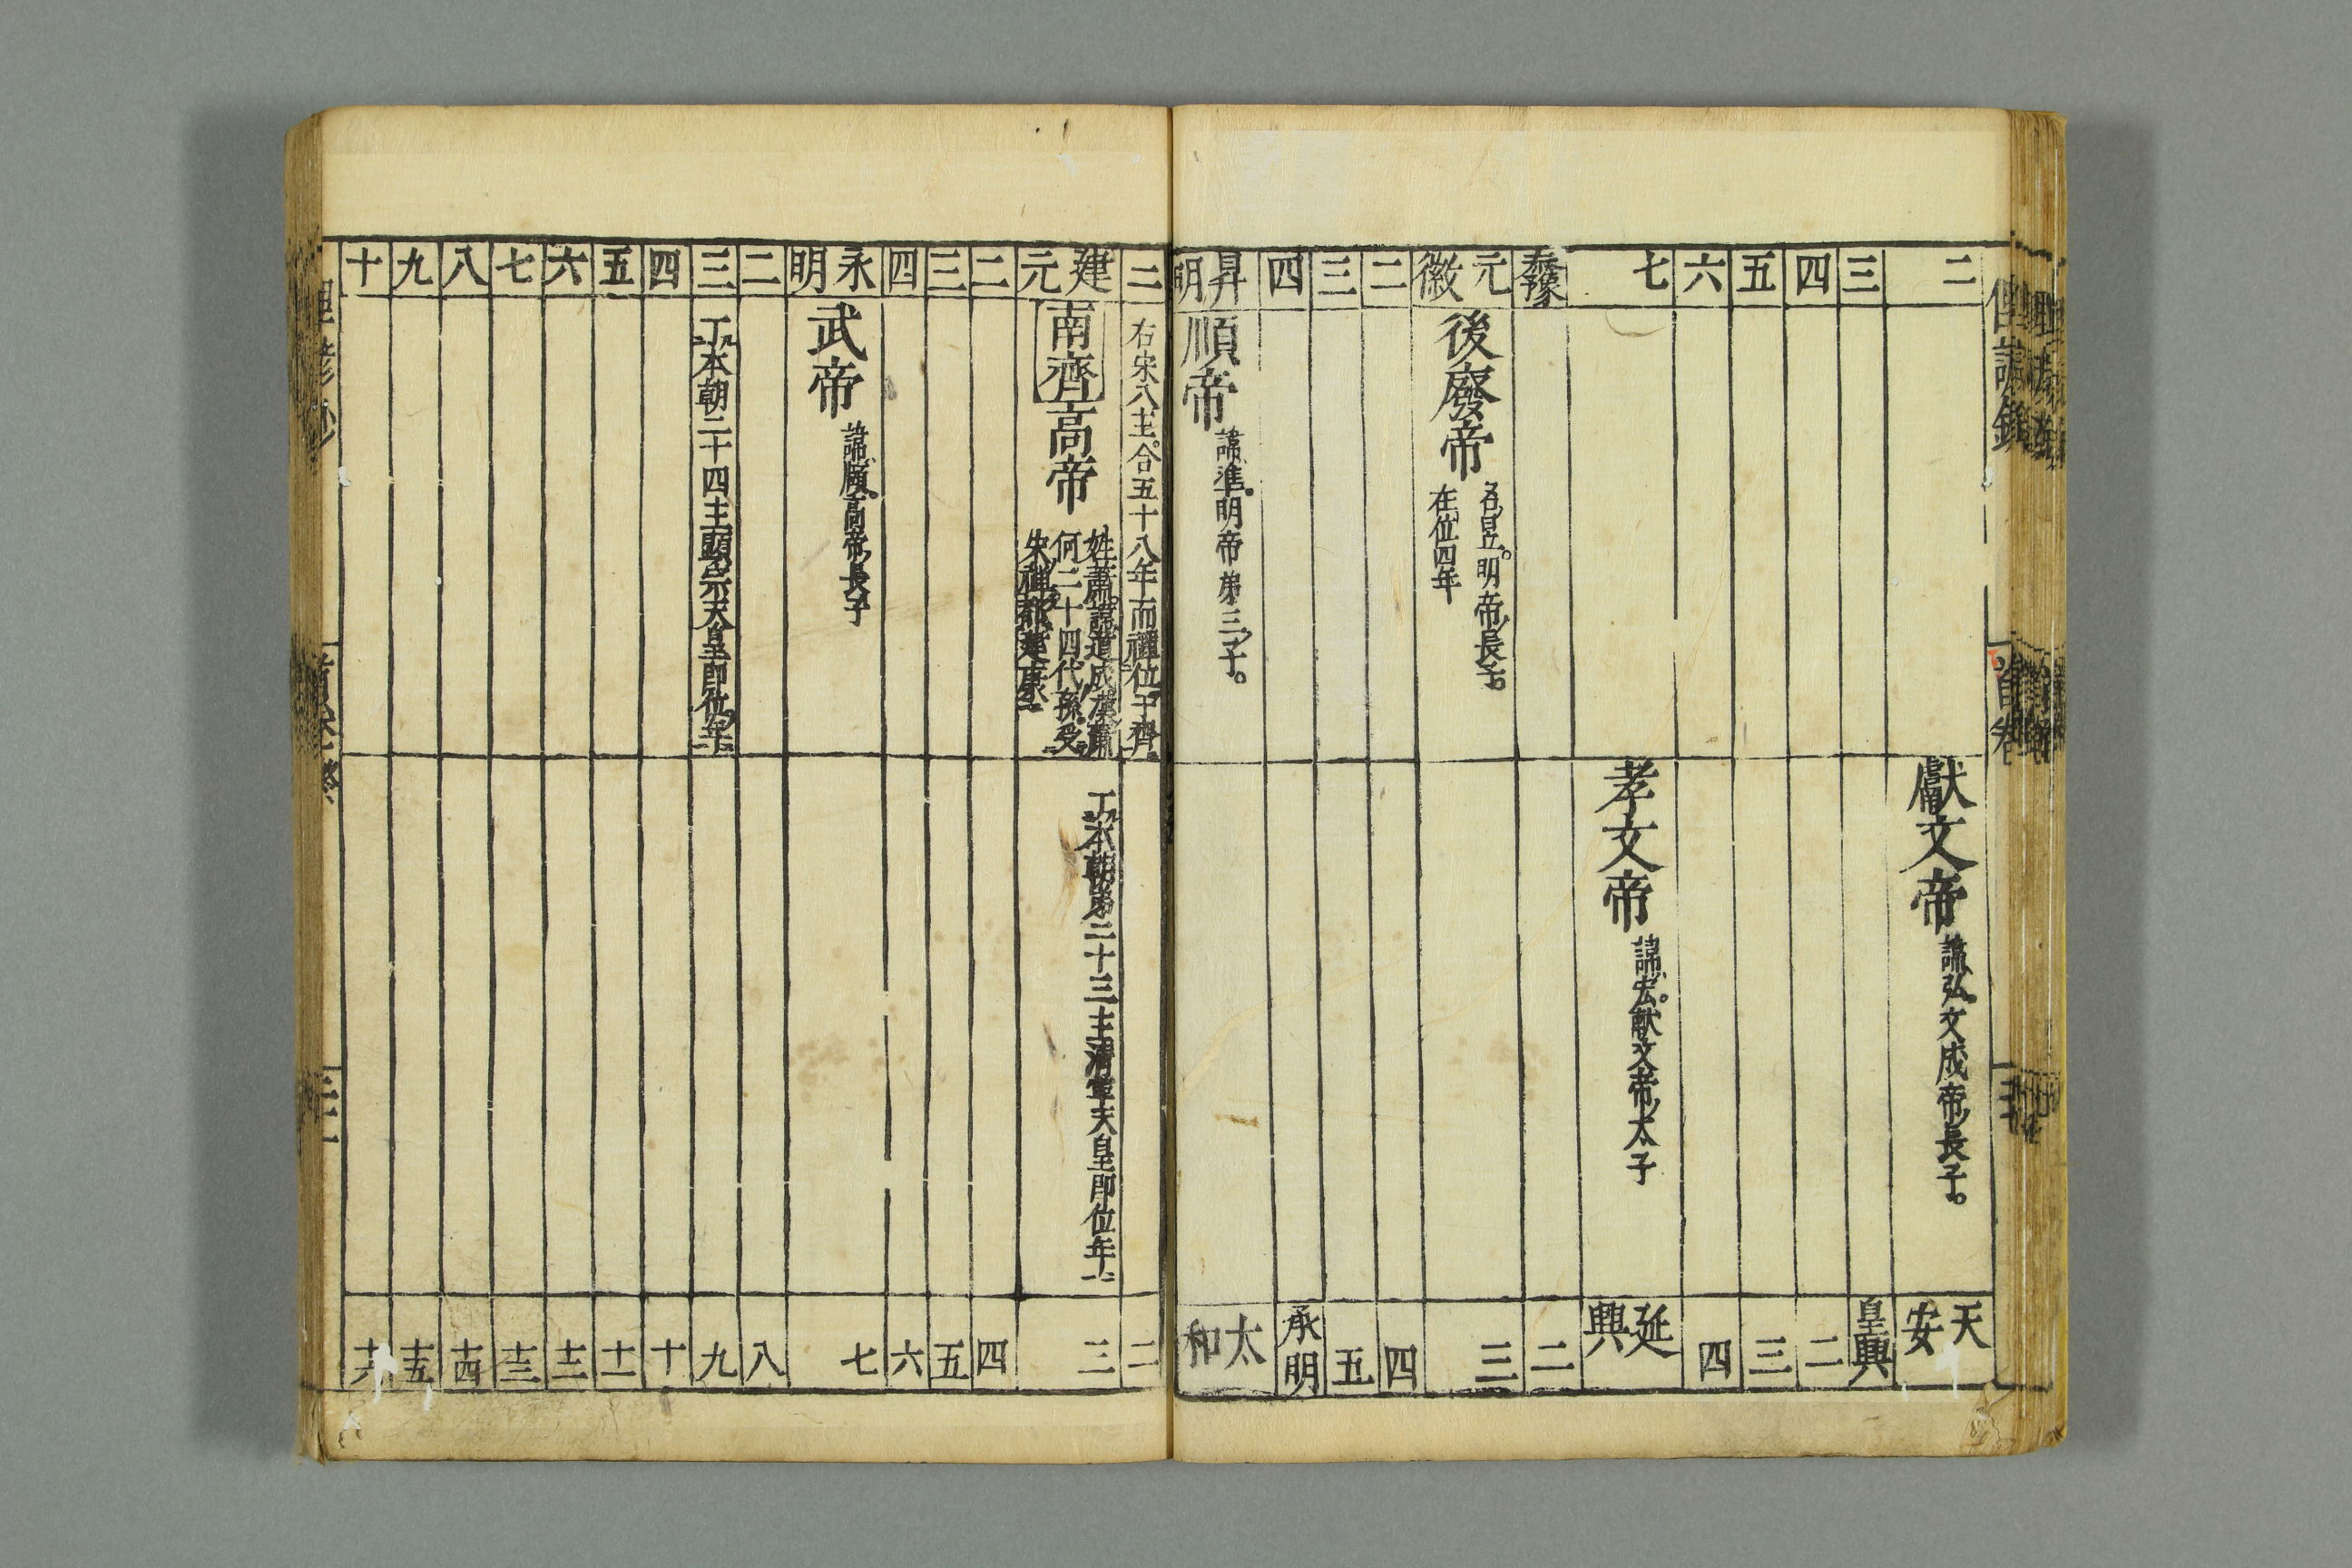 二
獻文帝 諱弘。文成帝ノ長子。
天安
三
皇興
四
二
五
三
六
四
七
孝文帝 諱宏。獻文帝ノ太子
延興
泰豫
二
元徽
後廢帝 名ハ昱。明帝ノ長子。
在位四年
三
二
四
三
五
四
承明
昇明
順帝 諱準。明帝第三ノ子。
太和
首卷
二
右宋八主。合五十八年而禪位于齊
二
建元
南齊高帝 姓蕭。諱道成。漢蕭
何二十四代ノ孫。受
宋禪都建康
丁本朝第二十三主清寧天皇即位年
三
二
四
三
五
四
六
永明
武帝 諱賾。高帝ノ長子
七
二
八
三
丁本朝二十四主顯宗天皇即位年
九
四
十
五
十一
六
十二
七
十三
八
十四
九
十五
十
十六